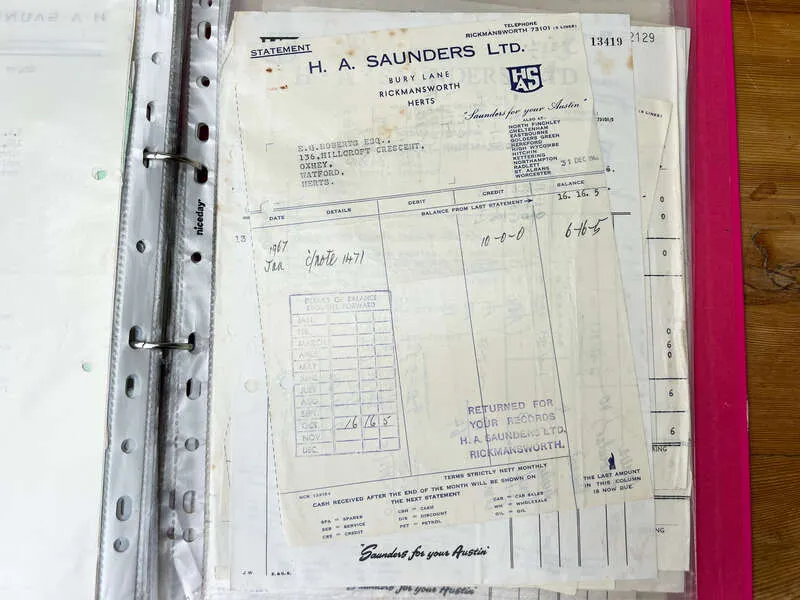 H A SAUN
niceday
13419
2129
TELEPHONE
RICKMANSWORTH 73101 (5 LINES)
STATEMENT
H. A. SAUNDERS LTD.
BURY LANE
RICKMANSWORTH
HERTS
HAS
"Saunders for your Austin"
ALSO AT:-
NORTH FINCHLEY
CHELTENHAM
EASTBOURNE
GOLDERS GREEN
HEREFORD
HIGH WYCOMBE
HITCHIN
KETTERING
NORTHAMPTON
RADLETT
ST ALBANS
WORCESTER
31 DEC 196
E.G.ROBERTS ESQ.,
136,HILLCROFT CRESCENT,
OXHEY,
WATFORD,
HERTS.
DATE DETAILS DEBIT CREDIT BALANCE
BALANCE FROM LAST STATEMENT→ 16. 16. 5
13
1967
Jan c/note 1471 10-0-0 6-16-5
DETAILS OF BALANCE
BROUGHT FORWARD
JAN.
FEB.
MARCH
APRIL
MAY
JUNE
JULY
AUG.
SEPT.
OCT. 16 16 5
NOV.
DEC.
RETURNED FOR
YOUR RECORDS
H. A. SAUNDERS LTD.
RICKMANSWORTH.
TERMS STRICTLY NETT MONTHLY
CASH RECEIVED AFTER THE END OF THE MONTH WILL BE SHOWN ON
THE NEXT STATEMENT
THE LAST AMOUNT
IN THIS COLUMN
IS NOW DUE.
SPA = SPARES CSH = CASH CAR = CAR SALES
SER = SERVICE DIS = DISCOUNT WH = WHOLESALE
CRE = CREDIT PET = PETROL OIL = OIL
"Saunders for your Austin"
J.W. E. & O. E.
"Saunders for your Austin"